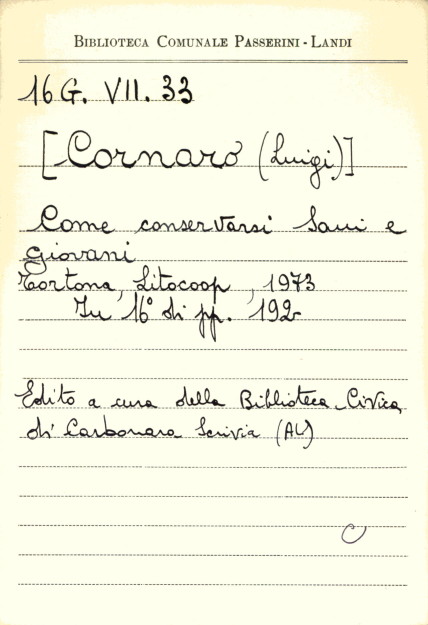 BIBLIOTECA COMUNALE PASSERINI - LANDI
16 G. VII. 33
[Cornaro (Luigi)]
Come conservarsi sani e
giovani
Tortona, Litocoop, 1973
In 16° di pp. 192
Edito a cura della Biblioteca Civica
di Carbonara Scrivia (AL)
C